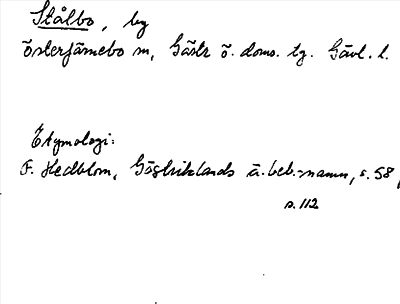 Stålbo, by
Österfärnebo sn, Gästr ö. doms. tg. Gävl. l.
Etymologi:
F. Hedblom, Gästriklands ä. beb.-namn, s. 58,
s. 112